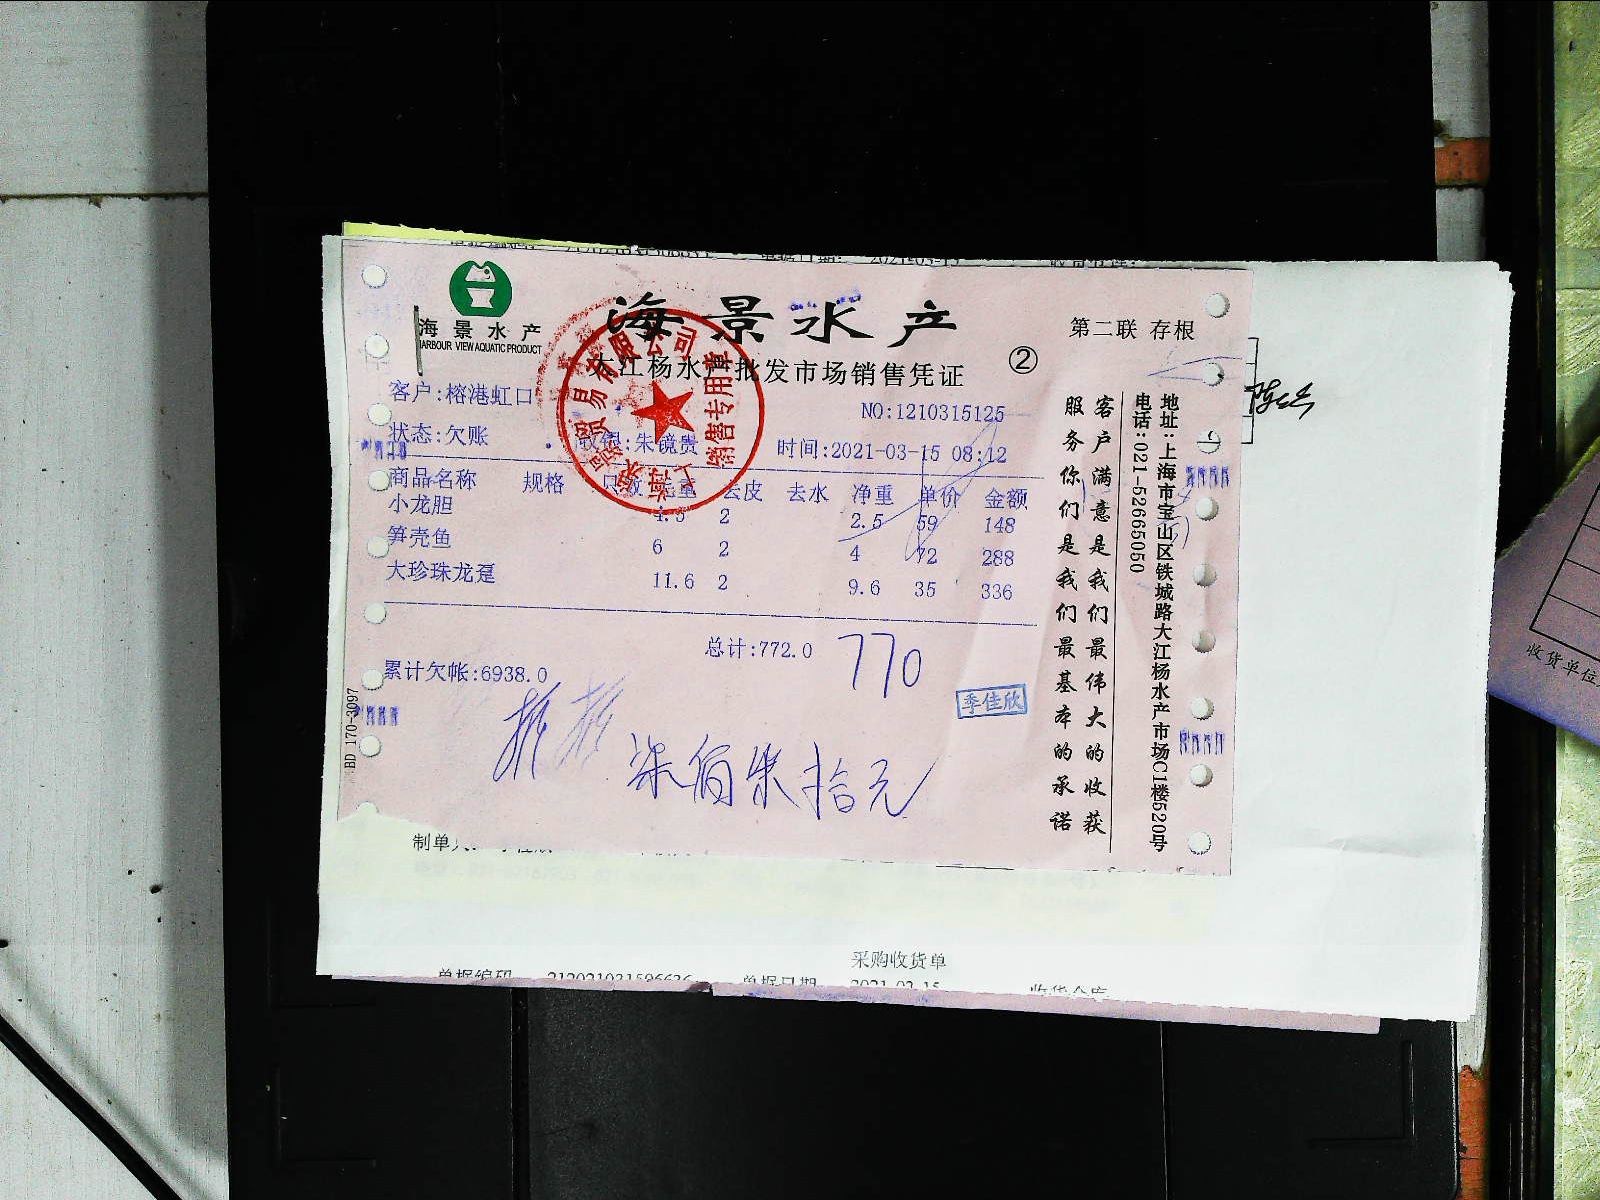 海景水产
HARBOUR VIEW AQUATIC PRODUCT
海景水产
大江杨水产批发市场销售凭证
②
第二联 存根
客户:榕港虹口
NO:1210315125
状态:欠账
收银:朱镜贵
时间:2021-03-15 08:12
商品名称 规格 只数 毛重 去皮 去水 净重 单价 金额
小龙胆 4.5 2 2.5 59 148
笋壳鱼 6 2 4 72 288
大珍珠龙趸 11.6 2 9.6 35 336
总计:772.0
770
累计欠帐:6938.0
季佳欣
柒佰柒拾元
BD 170-3097
客户满意是我们最伟大的收获
服务你们是我们最基本的承诺
地址:上海市宝山区铁城路大江杨水产市场C1楼520号
电话:021-52665050
销售专用章
制单人:
采购收货单
单据编码
单据日期 2021-03-15
收货仓库
收货单位